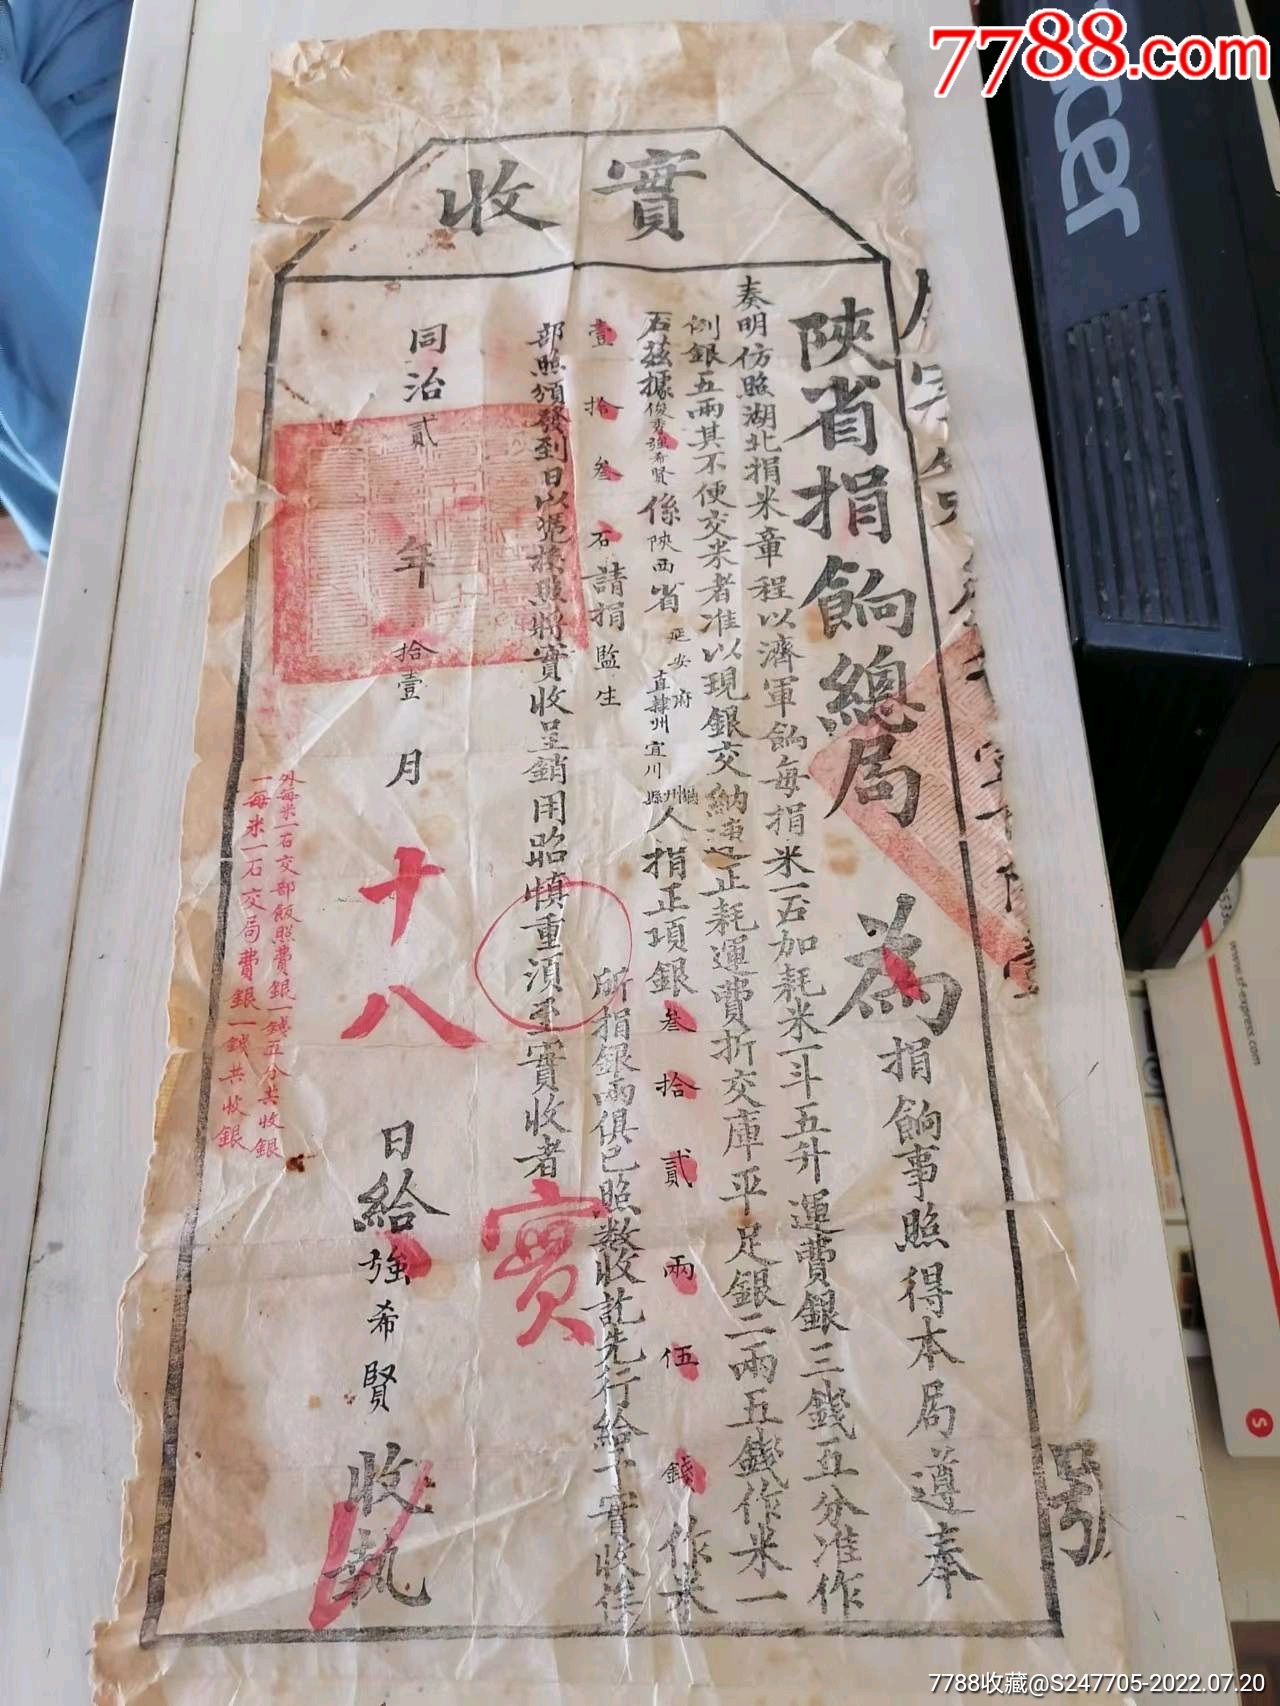 7788.com
acer
實收
陝省捐餉總局為捐餉事照得本局遵奉
奏明仿照湖北捐米章程以濟軍餉每捐米一石加耗米一斗五升運費銀三錢五分准作
例銀五兩其不便交米者准以現銀交納連正耗運費折交庫平足銀二兩五錢作米一
石茲據俊秀強希賢係陝西省延安府直隸州宜川州縣人捐正項銀叁拾貳兩伍錢作米
壹拾叁石請捐監生
所捐銀兩俱已照數收訖先行給予實收俟
部照頒發到日以憑換照將實收呈銷用昭慎重須至實收者
實
同治貳年拾壹月十八日給強希賢收執
外每米一石交部飯照費銀一錢五分共收銀
一每米一石交局費銀一錢共收銀
號
www.sf-express.com
S
7788收藏@S247705-2022.07.20